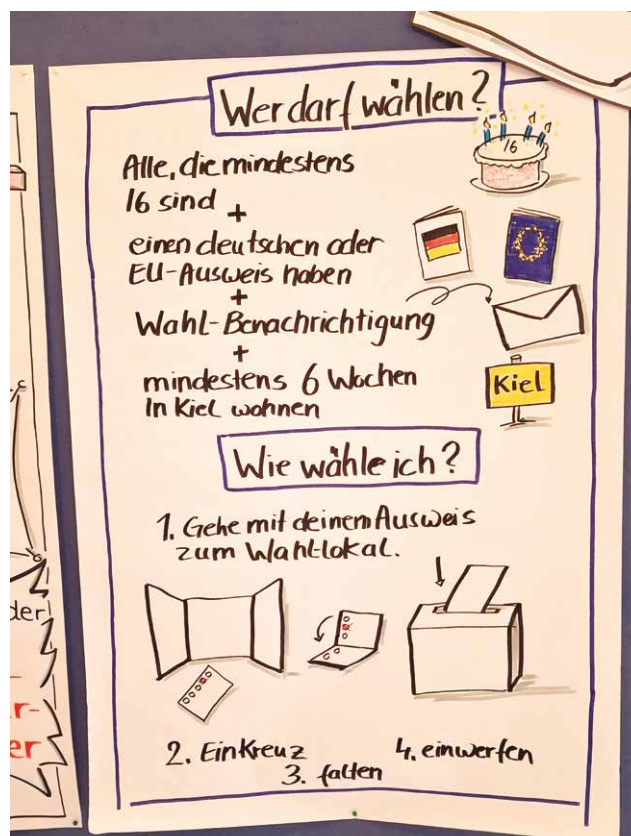 Wer darf wählen?
16
Alle, die mindestens
16 sind
+
einen deutschen oder
EU-Ausweis haben
+
Wahl-Benachrichtigung
+
mindestens 6 Wochen
In Kiel wohnen
Kiel
Wie wähle ich?
1. Gehe mit deinem Ausweis
zum Wahl-lokal.
2. Ein Kreuz
3. falten
4. einwerfen
der
-
r-
er